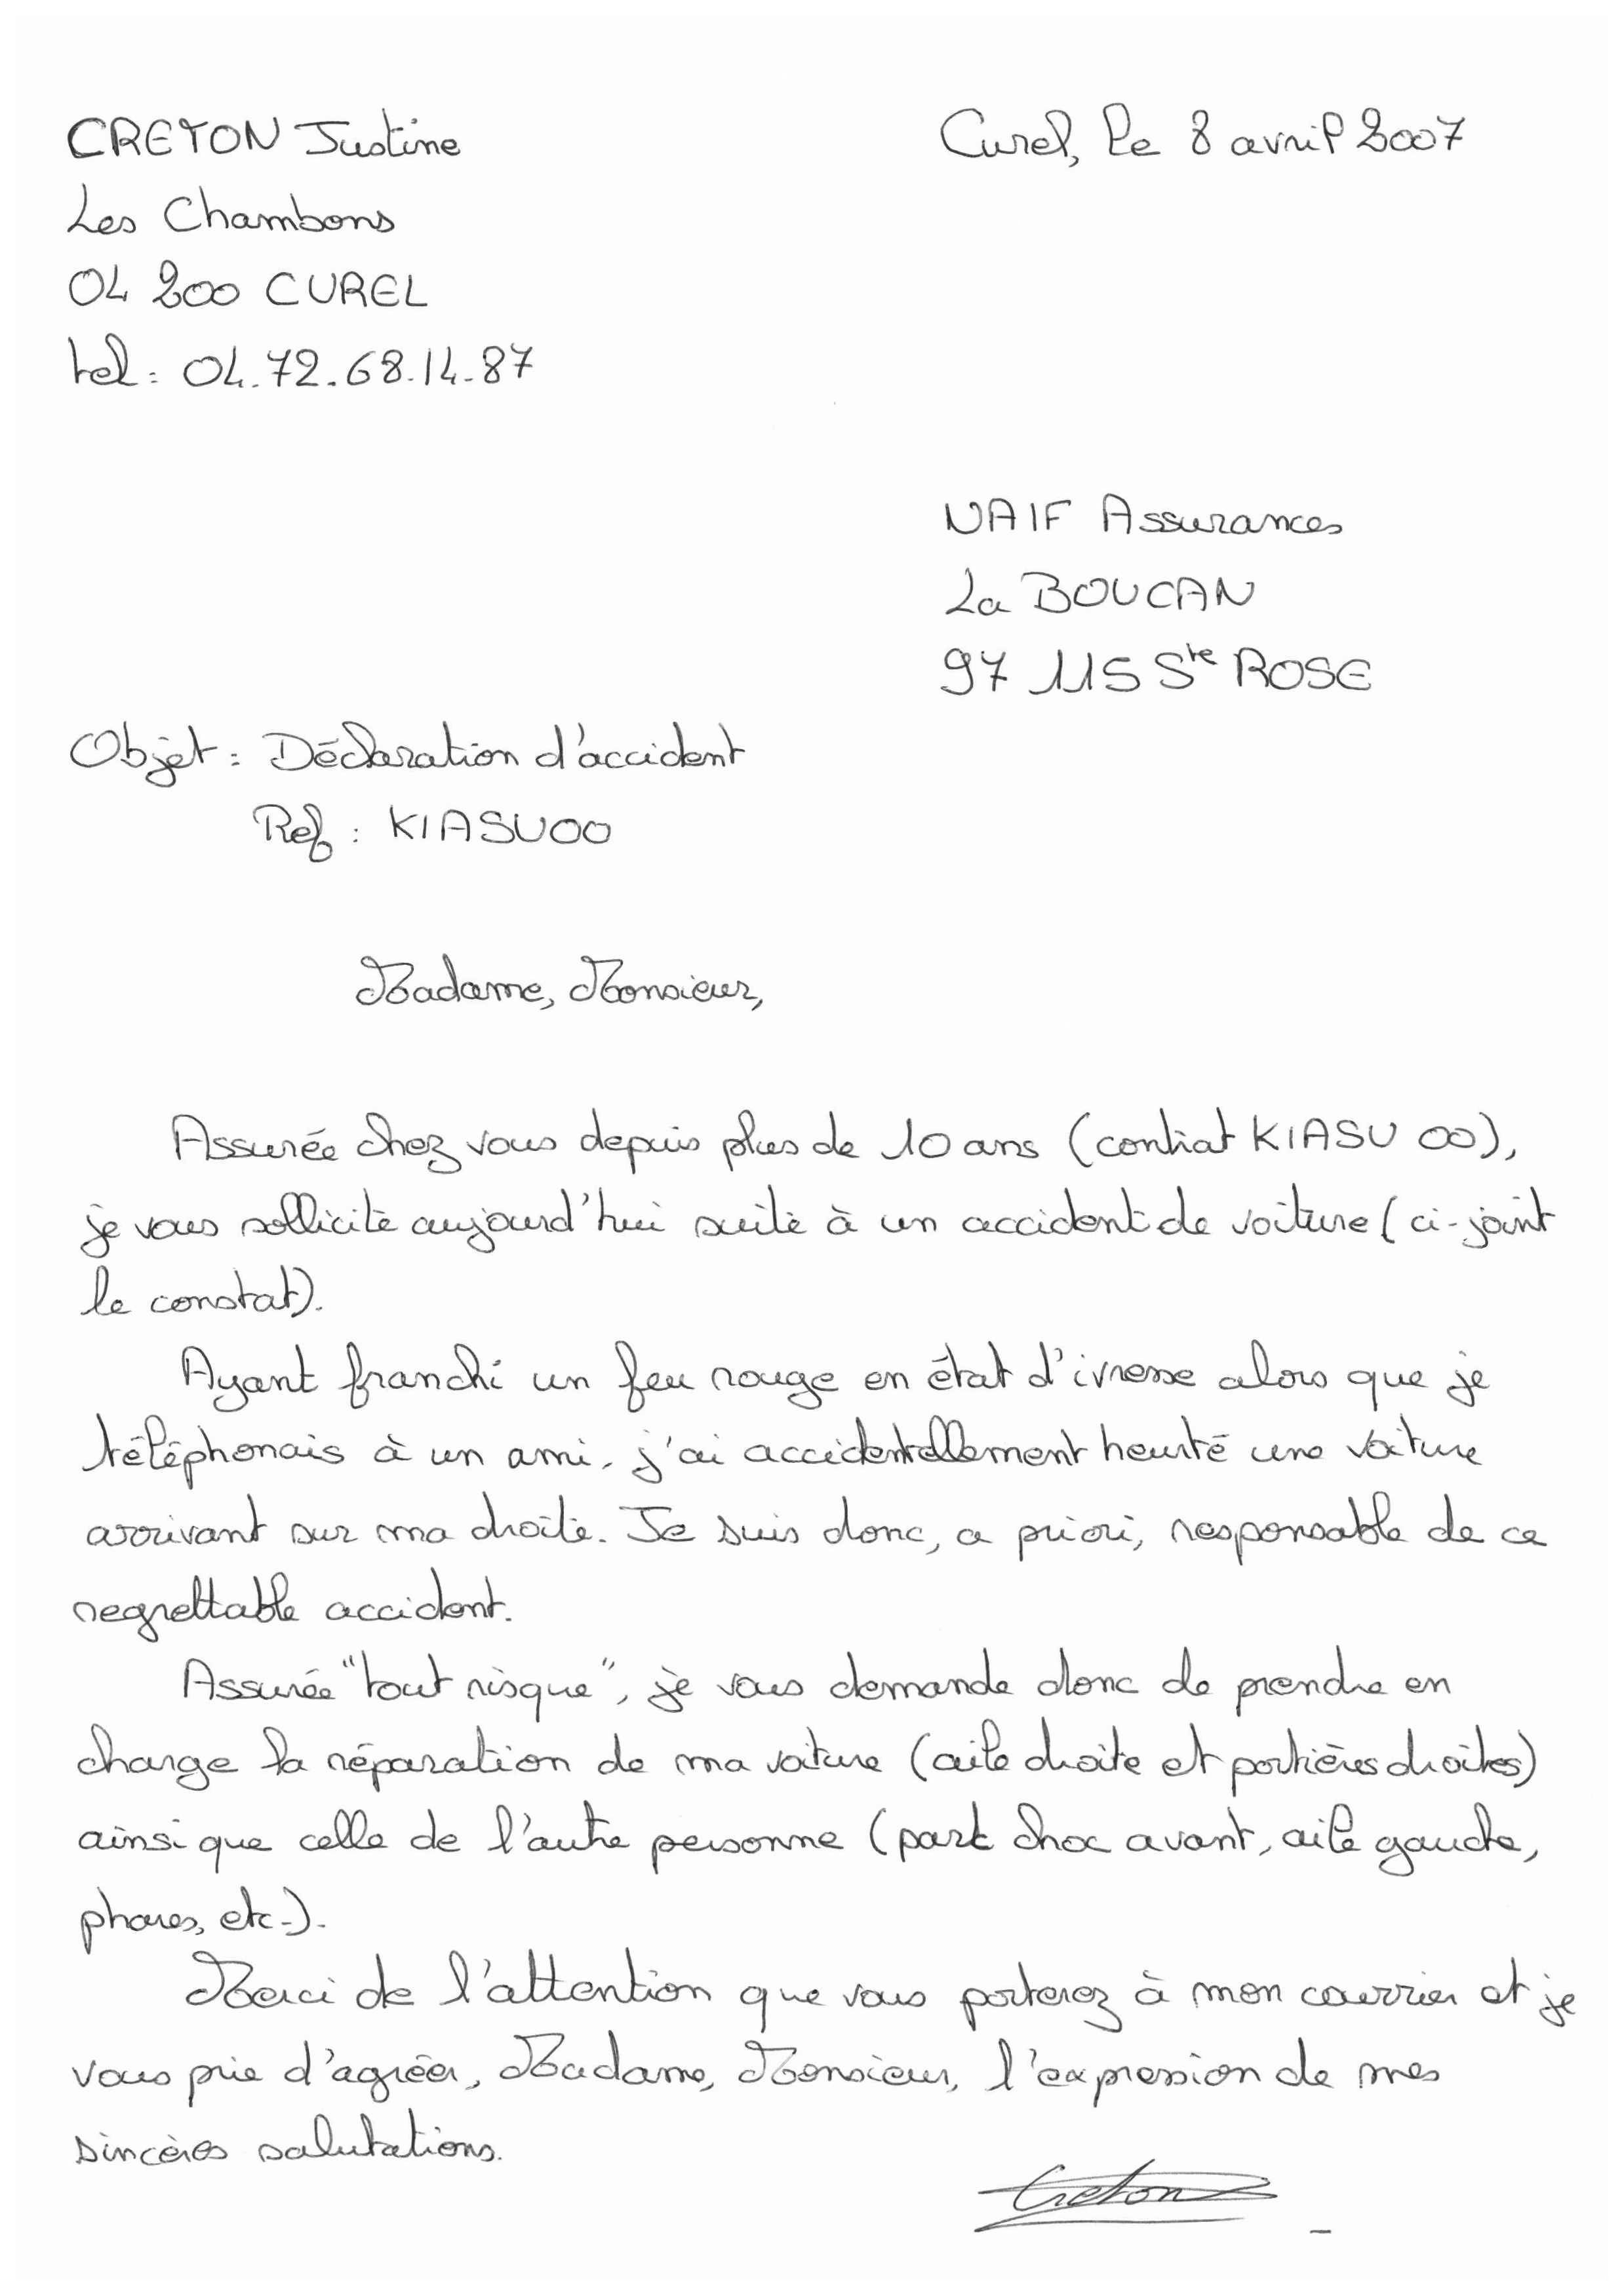 CRETON Justine
Curel, le 8 avril 2007
Les Chambons
04 200 CUREL
tel : 04.72.68.14.87
NAIF Assurances
La BOUCAN
97 115 Ste ROSE
Objet : Déclaration d'accident
Ref : KIASU00
Madame, Monsieur,
Assurée chez vous depuis plus de 10 ans (contrat KIASU 00),
je vous sollicite aujourd'hui suite à un accident de voiture (ci-joint
le constat).
Ayant franchi un feu rouge en état d'ivresse alors que je
téléphonais à un ami, j'ai accidentellement heurté une voiture
arrivant sur ma droite. Je suis donc, a priori, responsable de ce
regrettable accident.
Assurée "tout risque", je vous demande donc de prendre en
charge la réparation de ma voiture (aile droite et portières droites)
ainsi que celle de l'autre personne (park choc avant, aile gauche,
phares, etc.).
Merci de l'attention que vous porterez à mon courrier et je
vous prie d'agréer, Madame, Monsieur, l'expression de mes
sincères salutations.
Creton